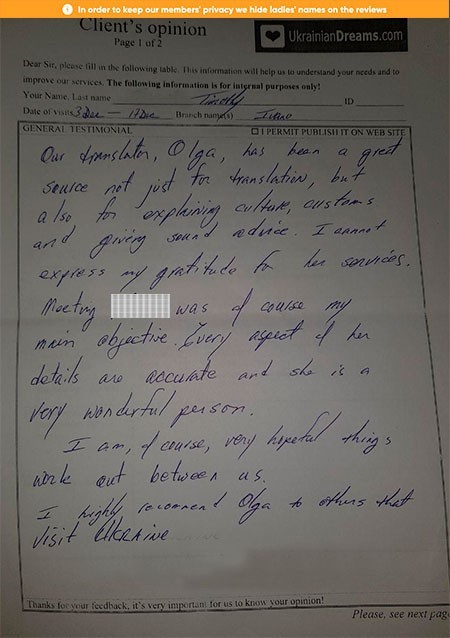 In order to keep our members' privacy we hide ladies' names on the reviews
Client's opinion
Page 1 of 2
UkrainianDreams.com
Dear Sir, please fill in the following table. This information will help us to understand your needs and to
improve our services. The following information is for internal purposes only!
Your Name, Last name Timothy ID
Date of visits 3 Dec - 17 Dec Branch name(s)
GENERAL TESTIMONIAL I PERMIT PUBLISH IT ON WEB SITE
Our translator, Olga, has been a great
source not just for translation, but
also for explaining culture, customs
and giving sound advice. I cannot
express my gratitude for her services.
Meeting was of course my
main objective. Every aspect of her
details are accurate and she is a
very wonderful person.
I am, of course, very hopeful things
work out between us.
I highly recommend Olga to others that
visit Ukraine
Thanks for your feedback, it's very important for us to know your opinion!
Please, see next page